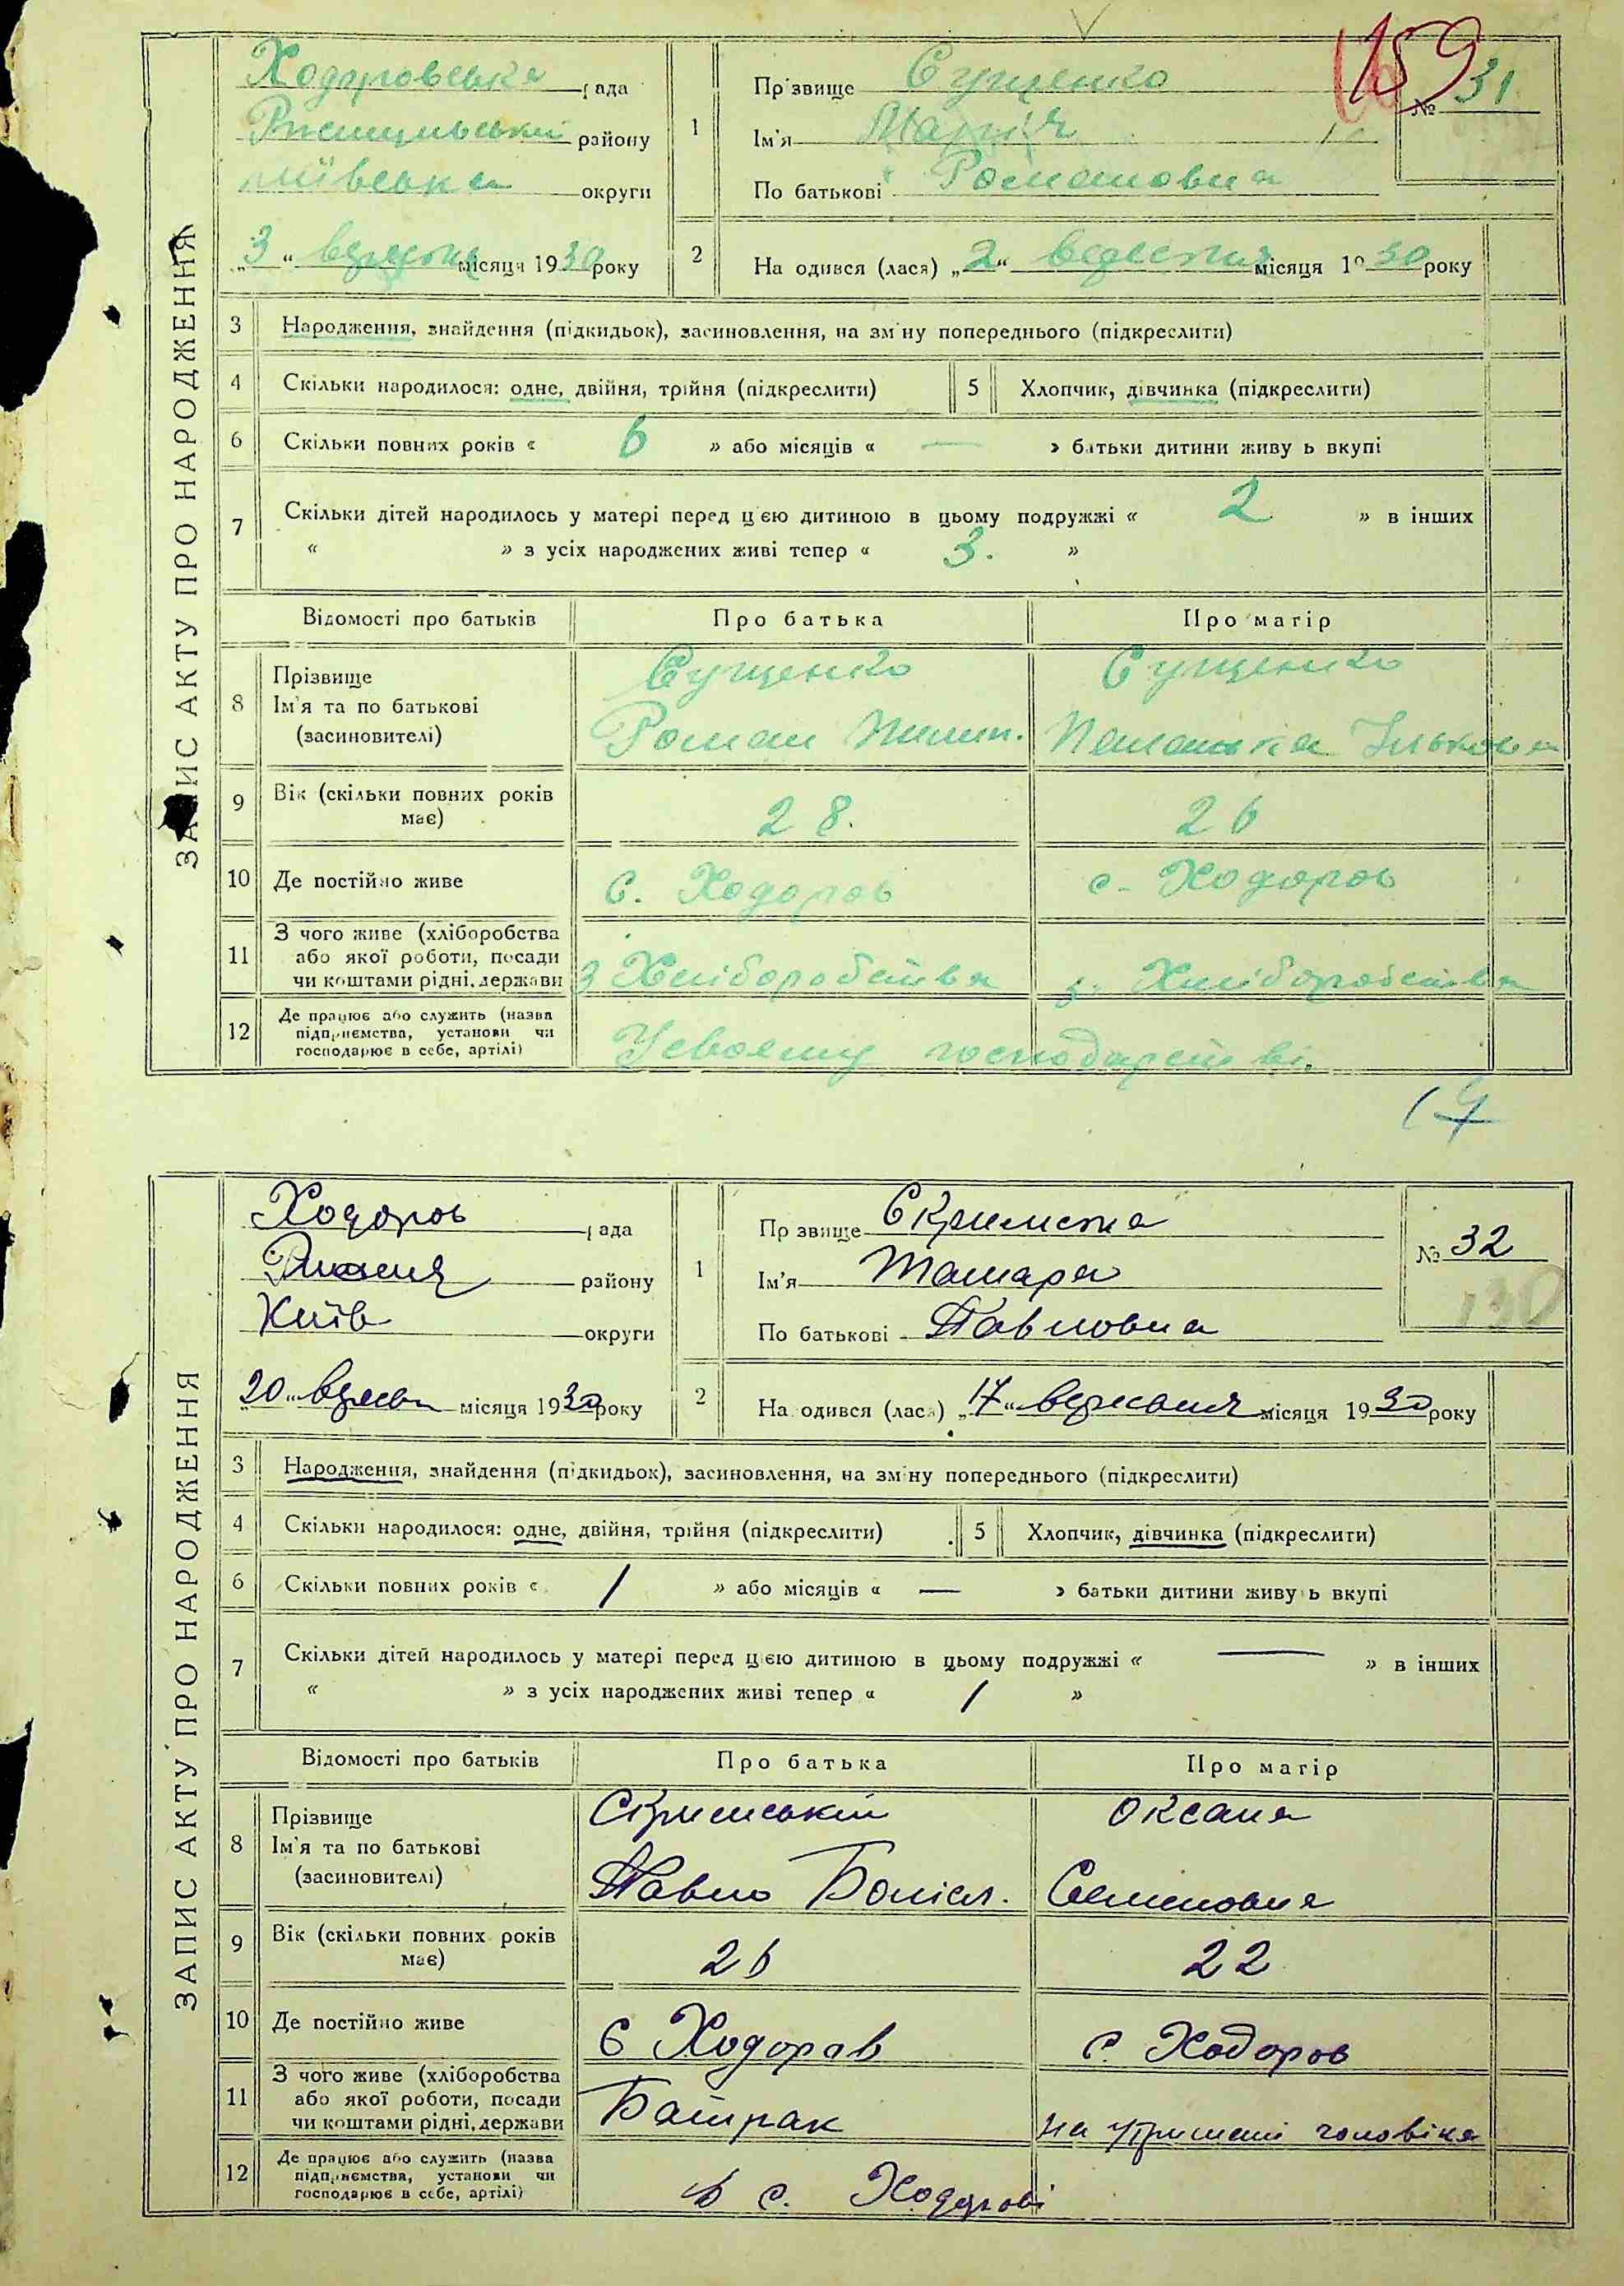 159
ЗАПИС АКТУ ПРО НАРОДЖЕННЯ
Ходоровська рада
району
Київська округи
„3“ вересня місяця 1930 року
1
Прізвище Сущенко
Ім'я Марія
По батькові Романовна
№ 31
2
Народився (лася) „2“ вересня місяця 1930 року
3 Народження, знайдення (підкидьок), засиновлення, на зміну попереднього (підкреслити)
4 Скільки народилося: одне, двійня, трійня (підкреслити)
5 Хлопчик, дівчинка (підкреслити)
6 Скільки повних років « 6 » або місяців « — » батьки дитини живуть вкупі
7 Скільки дітей народилось у матері перед цією дитиною в цьому подружжі « 2 » в інших
« » з усіх народжених живі тепер « 3. »
Відомості про батьків Про батька Про матір
8 Прізвище Сущенко Сущенко
Ім'я та по батькові Роман Пилип. Палажка Ількова
(засиновителі)
9 Вік (скільки повних років має) 28. 26
10 Де постійно живе С. Ходоров с. Ходоров
11 З чого живе (хліборобства
або якої роботи, посади
чи коштами рідні, держави З Хліборобства з Хліборобства
12 Де працює або служить (назва
підприємства, установи чи
господарює в себе, артілі) У своему господарстві.
ЗАПИС АКТУ ПРО НАРОДЖЕННЯ
Ходоров рада
району
Київ округи
„20“ місяця 1930 року
1
Прізвище
Ім'я Тамара
По батькові Павловна
№ 32
130
2
Народився (лася) „17“ вересня місяця 1930 року
3 Народження, знайдення (підкидьок), засиновлення, на зміну попереднього (підкреслити)
4 Скільки народилося: одне, двійня, трійня (підкреслити)
5 Хлопчик, дівчинка (підкреслити)
6 Скільки повних років « 1 » або місяців « — » батьки дитини живуть вкупі
7 Скільки дітей народилось у матері перед цією дитиною в цьому подружжі « — » в інших
« » з усіх народжених живі тепер « 1 »
Відомості про батьків Про батька Про матір
8 Прізвище Оксана
Ім'я та по батькові Павло Семеновна
(засиновителі)
9 Вік (скільки повних років має) 26 22
10 Де постійно живе С Ходоров с. Ходоров
11 З чого живе (хліборобства
або якої роботи, посади
чи коштами рідні, держави Батрак на утримані чоловіка
12 Де працює або служить (назва
підприємства, установи чи
господарює в себе, артілі) в с. Ходорові